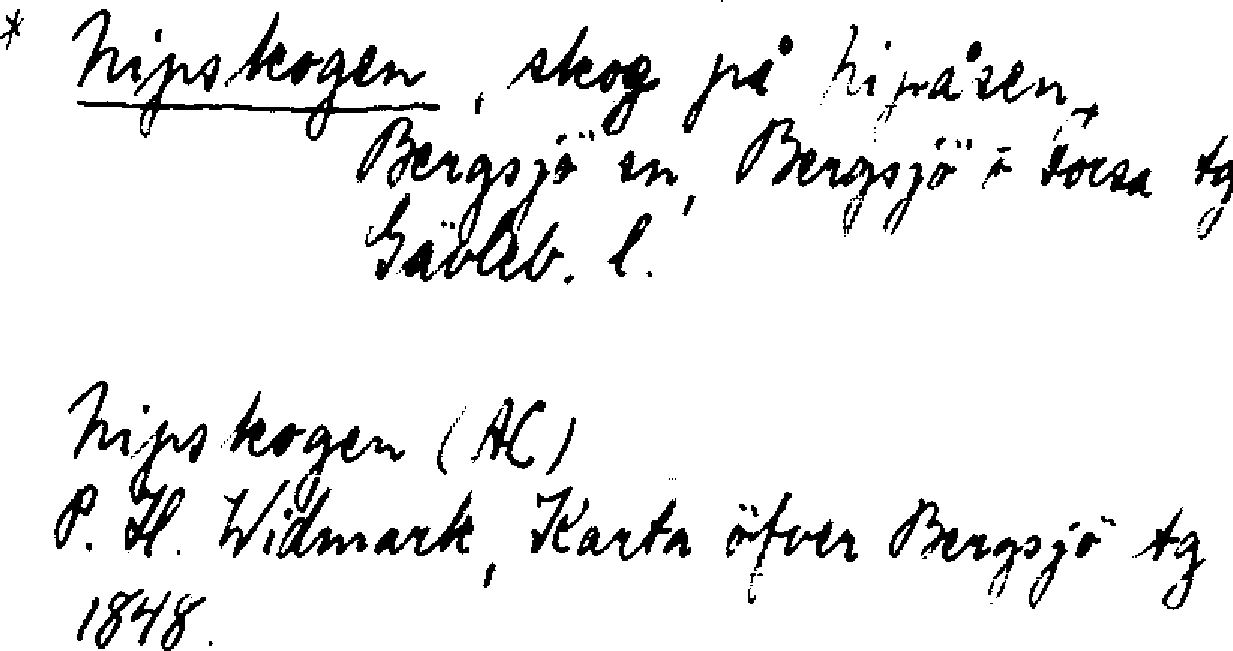 * Nipskogen, skog på Nipåsen,
Bergsjö sn, Bergsjö o Forsa tg
Gävleb. l.
Nipskogen (AC)
P. H. Widmark, Karta öfver Bergsjö tg
1848.